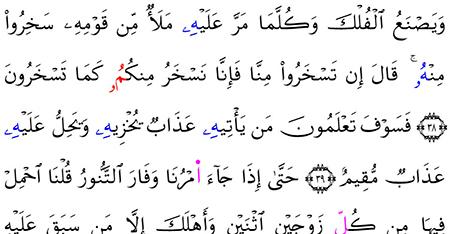 وَيَصْنَعُ ٱلْفُلْكَ وَكُلَّمَا مَرَّ عَلَيْهِۦ مَلَأٌ مِّن قَوْمِهِۦ سَخِرُوا۟
مِنْهُۥ ۚ قَالَ إِن تَسْخَرُوا۟ مِنَّا فَإِنَّا نَسْخَرُ مِنكُمُۥ كَمَا تَسْخَرُونَ
۝٣٨ فَسَوْفَ تَعْلَمُونَ مَن يَأْتِيهِۦ عَذَابٌ يُخْزِيهِۦ وَيَحِلُّ عَلَيْهِۦ
عَذَابٌ مُّقِيمٌ ۝٣٩ حَتَّىٰ إِذَا جَآءَ امْرُنَا وَفَارَ ٱلتَّنُّورُ قُلْنَا ٱحْمِلْ
فِيهَا مِن كُلِّ زَوْجَيْنِ ٱثْنَيْنِ وَأَهْلَكَ إِلَّا مَن سَبَقَ عَلَيْهِ